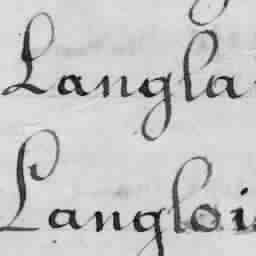 Langla
Langlois